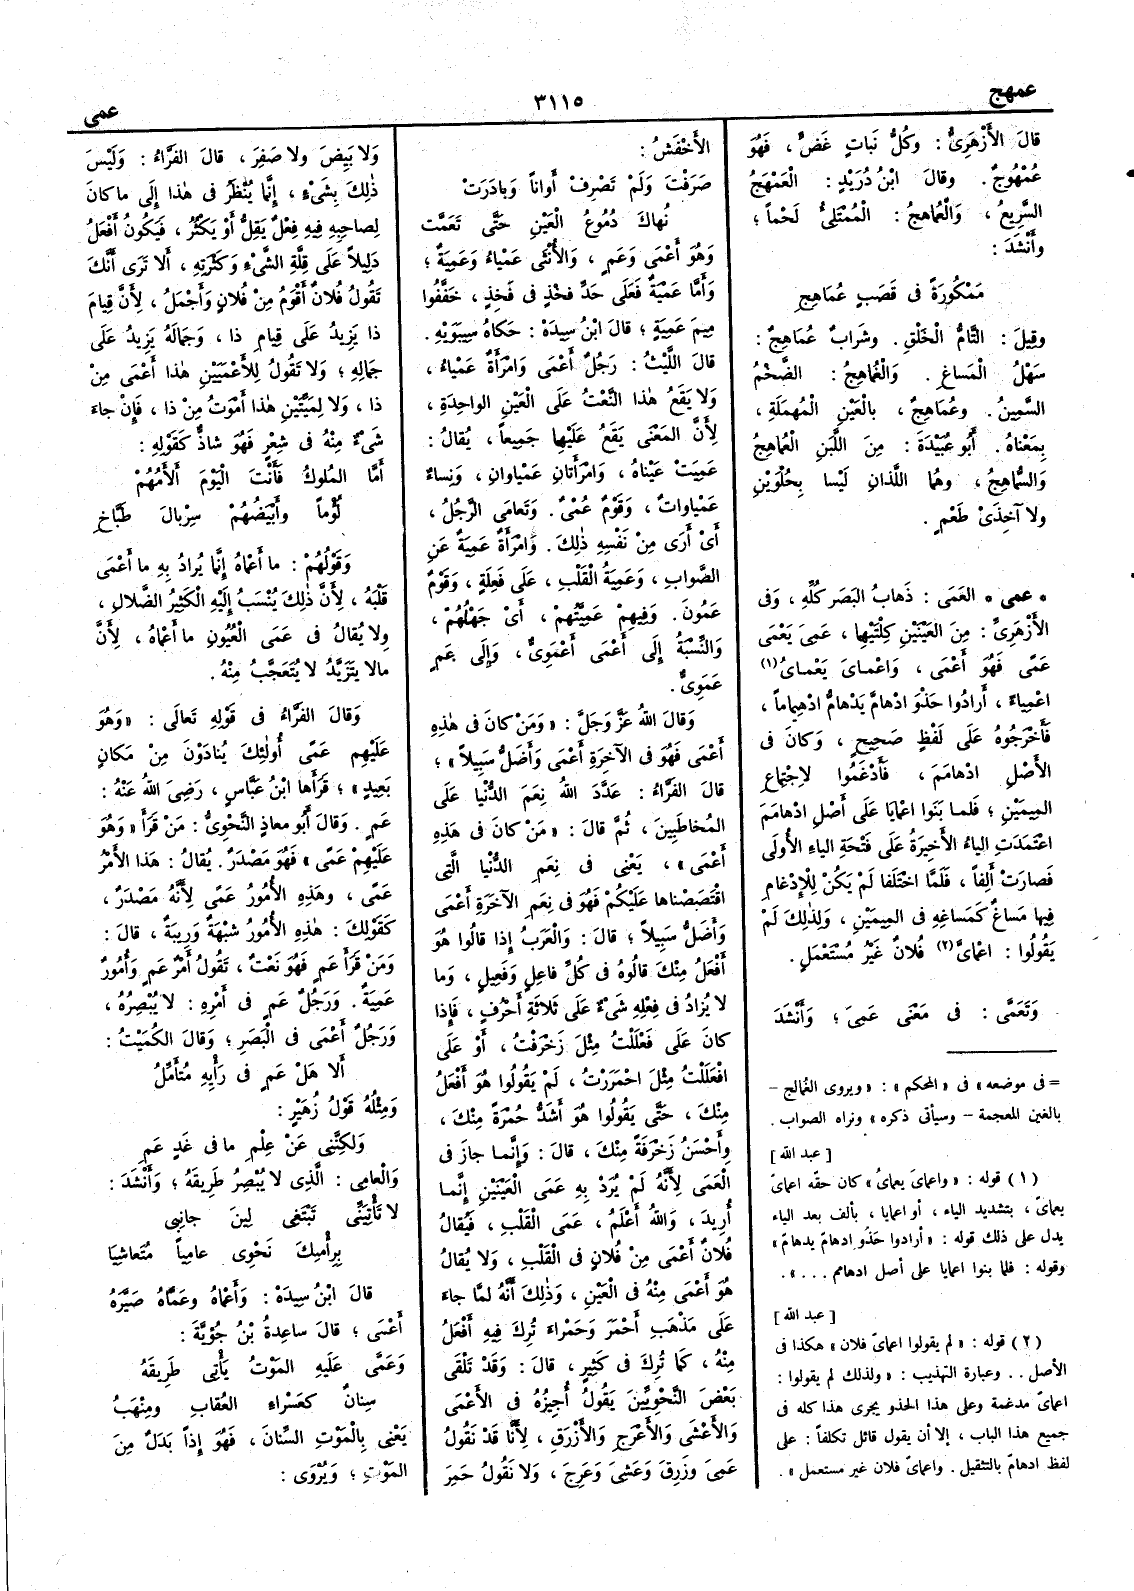 عمهج
٣١١٥
عمى
قالَ الأَزْهَرِىُّ : وكُلُّ نَباتٍ غَضٍّ ، فَهُوَ
عُمْهُوجٌ . وقالَ ابْنُ دُرَيْدٍ : الْعَمْهَجُ
السَّرِيعُ ، وَالْعُماهِجُ : الْمُمْتَلِئُ لَحْماً ؛
وأَنْشَدَ :
مَمْكُورَةً فى قَصَبٍ عُماهِجِ
وقِيلَ : التَّامُّ الْخَلْقِ . وشَرابٌ عُماهِجٌ :
سَهْلُ الْمَساغِ . وَالْعُماهِجُ : الضَّخْمُ
السَّمِينُ . وعُماهِجٌ ، بالْعَيْنِ الْمُهْمَلَةِ ،
بِمَعْناهُ . أَبُو عُبَيْدَةَ : مِنَ اللَّبَنِ الْعُماهِجُ
وَالسُّماهِجُ ، وهُما اللَّذانِ لَيْسا بِحُلْوَيْنِ
ولا آخِذَىْ طَعْمٍ .
* عمى * العَمَى : ذَهابُ البَصَرِ كُلِّهِ ، وَفى
الأَزْهَرِىِّ : مِنَ العَيْنَيْنِ كِلْتَيْهِما ، عَمِىَ يَعْمَى
عَمًى فَهُوَ أَعْمَى ، وَاعْمَاىَ يَعْمَاىُ (١)
اعْمِيَاءً ، أَرادُوا حَذْوَ ادْهَامَّ يَدْهَامُّ ادْهِيماماً ،
فَأَخْرَجُوهُ عَلَى لَفْظٍ صَحِيحٍ ، وَكانَ فى
الأَصْلِ ادْهامَمَ ، فَأَدْغَمُوا لاِجْتِماعِ
المِيمَيْنِ ؛ فَلَما بَنَوا اعْمايَا عَلَى أَصْلِ ادْهامَمَ
اعْتَمَدَتِ الياءُ الأَخِيرَةُ عَلَى فَتْحَةِ الياءِ الأُولَى
فَصارَتْ أَلِفاً ، فَلَمَّا اخْتَلَفا لَمْ يَكُنْ لِلْإِدْغامِ
فِيها مَساغٌ كَمَساغِهِ فى المِيمَيْنِ ، وَلِذلِكَ لَمْ
يَقُولُوا : اعْماىَّ (٢) فُلانٌ غَيْرَ مُسْتَعْمَلٍ .
وَتَعَمَّى : فى مَعْنَى عَمِىَ ؛ وَأَنْشَدَ
= فى موضعه » فى « المحكم » : « ويروى الغُمالج –
بالغين المعجمة – وسيأتى ذكره » ونراه الصواب .
[ عبد الله ]
( ١ ) قوله : « واعماىَ يعماىُ » كان حقّه اعماىَّ
يعماىُّ ، بتشديد الياء ، أو اعمايا ، بألف بعد الياء
يدل على ذلك قوله : « أرادوا حَذْوَ ادهامّ يدهامّ »
وقوله : فلما بنوا اعمايا على أصل ادهامم . . . » .
[ عبد الله ]
( ٢ ) قوله : « لم يقولوا اعماىّ فلان » هكذا فى
الأصل . . وعبارة التهذيب : « ولذلك لم يقولوا :
اعماىّ مدغمة وعلى هذا الحذو يجرى هذا كله فى
جميع هذا الباب ، إلا أن يقول قائل تكلفاً : على
لفظ ادهامّ بالتثقيل . واعماىّ فلان غير مستعمل » .
الأَخْفَشُ :
صَرَفْتَ وَلَمْ تَصْرِفْ أَواناً وَبادَرَتْ
نُهاكَ دُمُوعُ الْعَيْنِ حَتَّى تَعَمَّت
وَهُوَ أَعْمَى وَعَمٍ ، وَالأُنْثَى عَمْياءُ وَعَمِيَةٌ ؛
وَأَمَّا عَمْيَةٌ فَعَلَى حَدِّ فخْذٍ فى فَخِذٍ ، خَفَّفُوا
مِيمَ عَمِيَةٍ ؛ قالَ ابْنُ سِيدَهْ : حَكاهُ سِيبَوَيْهِ .
قالَ اللَّيْثُ : رَجُلٌ أَعْمَى وَامْرَأَةٌ عَمْياءُ ،
وَلا يَقَعُ هٰذا النَّعْتُ عَلَى العَيْنِ الواحِدَةِ ،
لِأَنَّ المَعْنَى يَقَعُ عَلَيْها جَمِيعاً ، يُقالُ :
عَمِيَتْ عَيْناهُ ، وَامْرَأَتانِ عَمْياوانِ ، وَنِساءٌ
عَمْياواتٌ ، وَقَوْمٌ عُمْىٌ . وَتَعامَى الرَّجُلُ ،
أَىْ أَرَى مِنْ نَفْسِهِ ذٰلِكَ . وَامْرَأَةٌ عَمِيَةٌ عَنِ
الصَّوابِ ، وَعَمِيَةُ الْقَلْبِ ، عَلَى فَعِلَةٍ ، وَقَوْمٌ
عَمُونَ . وَفِيهِمْ عَمِيَّتُهُمْ ، أَىْ جَهْلُهُمْ ،
وَالنِّسْبَةُ إِلَى أَعْمَى أَعْمَوِىٌّ ، وَإِلَى عَمٍ
عَمَوِىٌّ .
وَقالَ اللهُ عَزَّ وَجَلَّ : « وَمَنْ كانَ فى هٰذِهِ
أَعْمَى فَهُوَ فى الآخِرَةِ أَعْمَى وَأَضَلُّ سَبِيلاً » ؛
قالَ الفَرَّاءُ : عَدَّدَ اللهُ نِعَمَ الدُّنْيا عَلَى
المُخاطَبِينَ ، ثُمَّ قالَ : « مَنْ كانَ فى هَذِهِ
أَعْمَى » ، يَعْنِى فى نِعَمِ الدُّنْيا الَّتِى
اقْتَصَصْناها عَلَيْكُمْ فَهُوَ فى نِعَمِ الآخِرَةِ أَعْمَى
وَأَضَلُّ سَبِيلاً ؛ قالَ : وَالْعَرَبُ إِذا قالُوا هُوَ
أَفْعَلُ مِنْكَ قالُوهُ فى كُلِّ فاعِلٍ وَفَعِيلٍ ، وَما
لا يُزادُ فى فِعْلِهِ شَىْءٌ عَلَى ثَلاثَةِ أَحْرُفٍ ، فَإِذا
كانَ عَلَى فَعْلَلْتُ مِثْلَ زَخْرَفْتُ ، أَوْ عَلَى
افْعَلَلْتُ مِثْلَ احْمَرَرْتُ ، لَمْ يَقُولُوا هُوَ أَفْعَلُ
مِنْكَ ، حَتَّى يَقُولُوا هُوَ أَشَدُّ حُمْرَةً مِنْكَ ،
وأَحْسَنُ زَخْرَفَةً مِنْكَ ، قالَ : وَإِنَّما جازَ فى
الْعَمَى لِأَنَّهُ لَمْ يُرَدْ بِهِ عَمَى العَيْنَيْنِ إِنَّما
أُرِيدَ ، وَاللهُ أَعْلَمُ ، عَمَى الْقَلْبِ ، فَيُقالُ
فُلانٌ أَعْمَى مِنْ فُلانٍ فى الْقَلْبِ ، وَلا يُقالُ
هُوَ أَعْمَى مِنْهُ فى الْعَيْنِ ، وَذٰلِكَ أَنَّهُ لمَّا جاءَ
عَلَى مَذْهَبِ أَحْمَرَ وَحَمْراءَ تُرِكَ فِيهِ أَفْعَلُ
مِنْهُ ، كَما تُرِكَ فى كَثِيرٍ ، قالَ : وَقَدْ تَلْقَى
بَعْضَ النَّحْوِيِّينَ يَقُولُ أُجِيزُهُ فى الأَعْمَى
وَالأَعْشَى وَالأَعْرَجِ وَالأَزْرَقِ ، لِأَنَّا قَدْ نَقُولُ
عَمِىَ وَزَرِقَ وَعَشِىَ وَعَرِجَ ، وَلا نَقُولُ حَمِرَ
وَلا بَيِضَ ولا صَفِرَ ، قالَ الفَرَّاءُ : وَلَيْسَ
ذٰلِكَ بِشَىْءٍ ، إِنَّما يُنْظَرُ فى هٰذا إِلَى ما كانَ
لِصاحِبِهِ فِيهِ فِعْلٌ يَقِلُّ أَوْ يَكْثُرُ ، فَيَكُونُ أَفْعَلُ
دَلِيلاً عَلَى قِلَّةِ الشَّىْءِ وَكَثْرَتِهِ ، أَلا تَرَى أَنَّكَ
تَقُولُ فُلانٌ أَقْوَمُ مِنْ فُلانٍ وَأَجْمَلُ ، لِأَنَّ قِيامَ
ذا يَزِيدُ عَلَى قِيامِ ذا ، وَجَمالَهُ يَزِيدُ عَلَى
جَمالِهِ ؛ وَلا تَقُولُ لِلأَعْمَيَيْنِ هٰذا أَعْمَى مِنْ
ذا ، وَلا لِمَيِّتَيْنِ هٰذا أَمْوَتُ مِنْ ذا ، فَإِنْ جاءَ
شَىْءٌ مِنْهُ فى شِعْرٍ فَهُوَ شاذٌّ كَقَوْلِهِ :
أَمَّا المُلُوكُ فَأَنْتَ الْيَوْمَ أَلْأَمُهُمْ
لُؤْماً وأَبْيَضُهُمْ سِرْبالَ طَبَّاخِ
وَقَوْلُهُمْ : ما أَعْماهُ إِنَّما يُرادُ بِهِ ما أَعْمَى
قَلْبَهُ ، لِأَنَّ ذٰلِكَ يُنْسَبُ إِلَيْهِ الْكَثِيرُ الضَّلالِ ،
وَلا يُقالُ فى عَمَى الْعُيُونِ ما أَعْماهُ ، لِأَنَّ
مالا يَتَزَيَّدُ لا يُتَعَجَّبُ مِنْهُ .
وَقالَ الفَرَّاءُ فى قَوْلِهِ تَعالَى : « وَهُوَ
عَلَيْهِم عَمًى أُولٰئِكَ يُنادَوْنَ مِنْ مَكانٍ
بَعِيدٍ » ؛ قَرَأَها ابْنُ عَبَّاسٍ ، رَضِىَ اللهُ عَنْهُ :
عَمٍ . وَقالَ أَبُو مُعاذٍ النَّحْوِىُّ : مَنْ قَرَأَ « وَهُوَ
عَلَيْهِمْ عَمًى » فَهُوَ مَصْدَرٌ . يُقالُ : هَذا الأَمْرُ
عَمًى ، وَهَذِهِ الأُمُورُ عَمًى لِأَنَّهُ مَصْدَرٌ ،
كَقَوْلِكَ : هٰذِهِ الأُمُورُ شُبْهَةٌ وَرِيبَةٌ ، قالَ :
وَمَنْ قَرَأَ عَمٍ فَهُوَ نَعْتٌ ، تَقُولُ أَمْرٌ عَمٍ وَأُمُورٌ
عَمِيَةٌ . وَرَجُلٌ عَمٍ فى أَمْرِهِ : لا يُبْصِرُهُ ،
وَرَجُلٌ أَعْمَى فى الْبَصَرِ ؛ وَقالَ الكُمَيْتُ :
أَلا هَلْ عَمٍ فى رَأْيِهِ مُتَأَمِّلُ
وَمِثْلُهُ قَوْلُ زُهَيْرٍ :
وَلكِنَّنِى عَنْ عِلْمِ ما فى غَدٍ عَمِ
وَالْعامِى : الَّذِى لا يُبْصِرُ طَرِيقَهُ ؛ وَأَنْشَدَ :
لا تَأْتِيَنِّى تَبْتَغِى لِينَ جانِبِى
بِرَأْسِكَ نَحْوِى عامِياً مُتَعاشِيا
قالَ ابْنُ سِيدَهْ : وَأَعْماهُ وعَمَّاهُ صَيَّرَهُ
أَعْمَى ؛ قالَ ساعِدَةُ بْنُ جُوَيَّةَ :
وَعَمَّى عَلَيهِ المَوْتُ يَأْتِى طَرِيقَهُ
سِنانٌ كَعَسْراءِ العُقابِ ومِنْهَبُ
يَعْنِى بِالْمَوْتِ السِّنانَ ، فَهُوَ إِذاً بَدَلٌ مِنَ
المَوْتِ ؛ وَيُرْوَى :